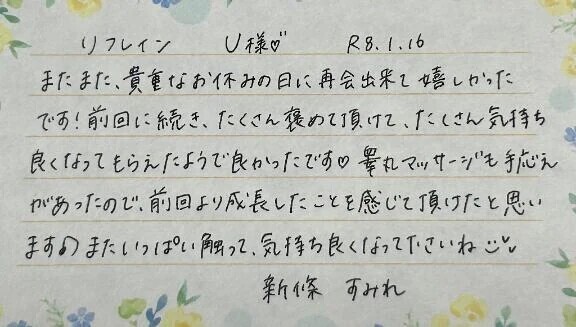 リフレイン U様♡ R8.1.16
またまた、貴重なお休みの日に再会出来て嬉しかった
です！前回に続き、たくさん褒めて頂けて、たくさん気持ち
良くなってもらえたようで良かったです♡ 睾丸マッサージも手応え
があったので、前回より成長したことを感じて頂けたと思い
ます♪ またいっぱい触って、気持ち良くなってくださいね
新條 すみれ